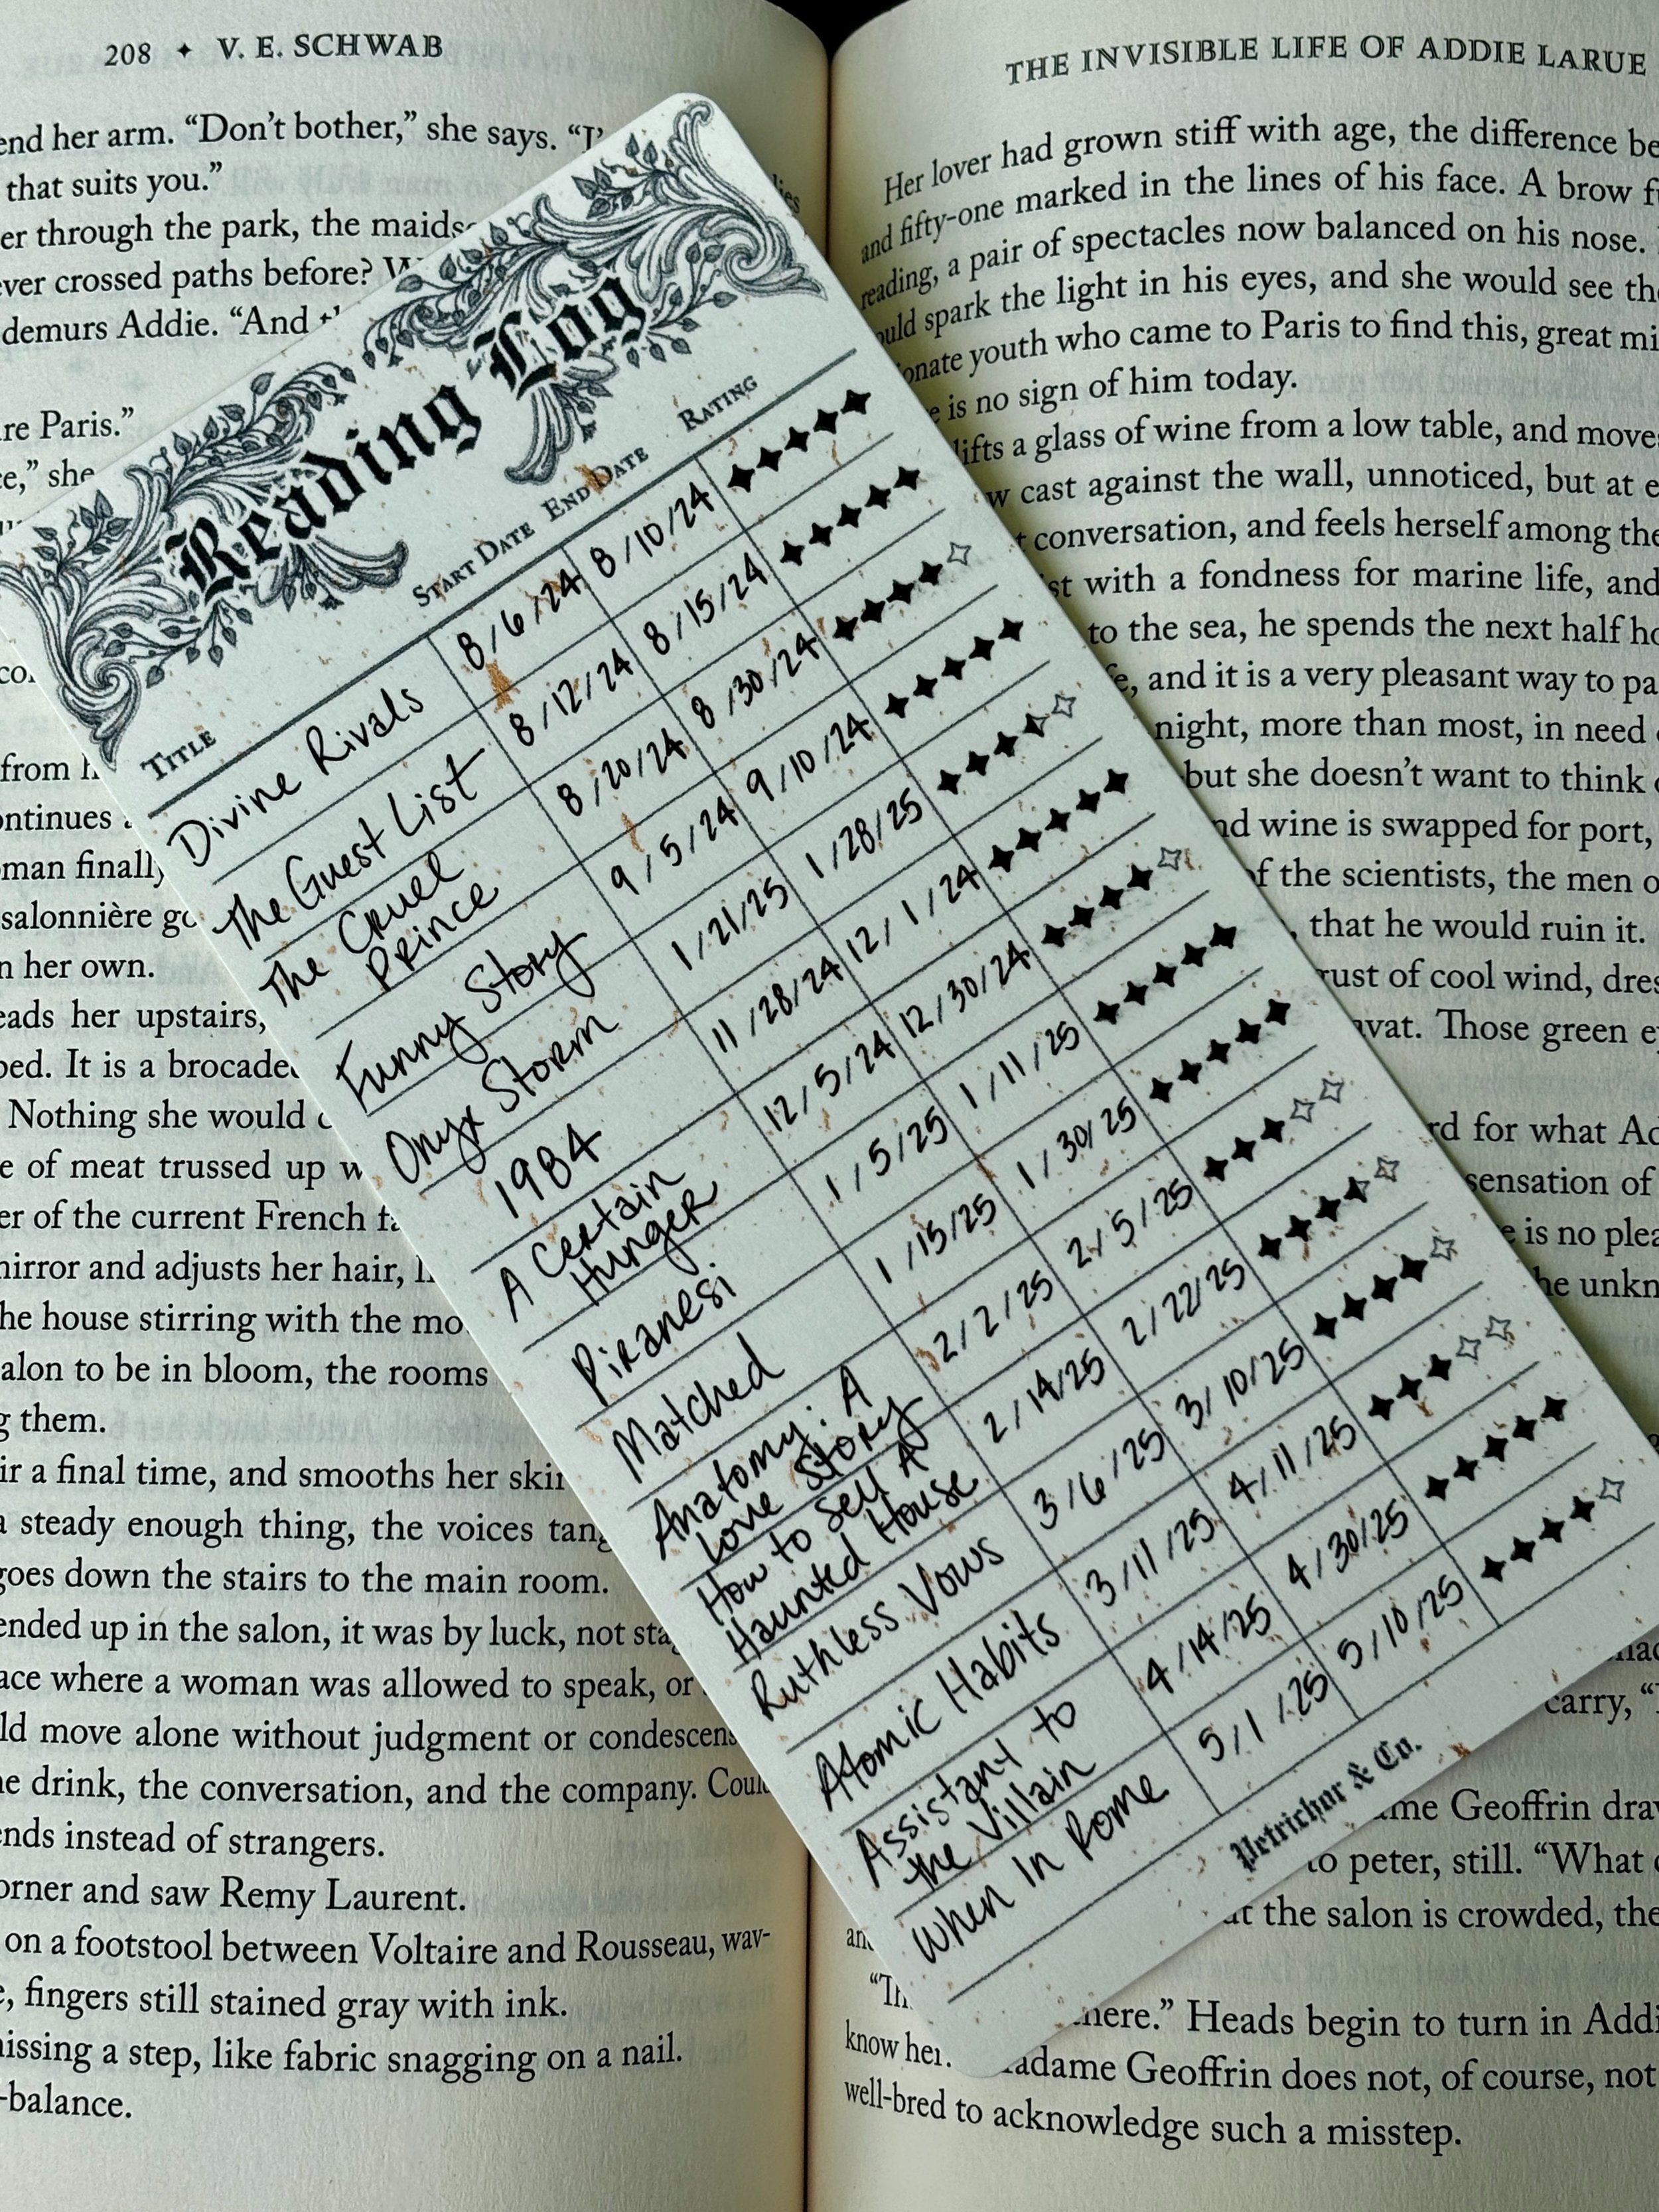 208 ✦ V. E. SCHWAB
end her arm. “Don’t bother,” she says.
that suits you.”
er through the park, the maids
ever crossed paths before?
demurs Addie. “And
re Paris.”
ce,” she
from
ontinues
man finally
salonnière
n her own.
eads her upstairs,
ped. It is a brocade
Nothing she would
e of meat trussed up
er of the current French
mirror and adjusts her hair,
he house stirring with the
alon to be in bloom, the rooms
g them.
ir a final time, and smooths her
a steady enough thing, the voices
goes down the stairs to the main room.
ended up in the salon, it was by luck, not
ace where a woman was allowed to speak, or
ld move alone without judgment or condescens
he drink, the conversation, and the company. Coul
ends instead of strangers.
orner and saw Remy Laurent.
on a footstool between Voltaire and Rousseau, wav-
e, fingers still stained gray with ink.
issing a step, like fabric snagging on a nail.
-balance.
Reading Log
TITLE START DATE END DATE RATING
Divine Rivals 8/6/24 8/10/24
The Guest List 8/12/24 8/15/24
The Cruel
Prince 8/20/24 8/30/24
Funny Story 9/5/24 9/10/24
Onyx Storm 1/21/25 1/28/25
1984 11/28/24 12/1/24
A Certain
Hunger 12/5/24 12/30/24
Piranesi 1/5/25 1/11/25
Matched 1/15/25 1/30/25
Anatomy: A
Love Story 2/2/25 2/5/25
How to Sell A
Haunted House 2/14/25 2/22/25
Ruthless Vows 3/6/25 3/10/25
Atomic Habits 3/11/25 4/11/25
Assistant to
the Villain 4/14/25 4/30/25
When In Rome 5/1/25 5/10/25
Petrichor & Co.
THE INVISIBLE LIFE OF ADDIE LARUE
Her lover had grown stiff with age, the difference be
and fifty-one marked in the lines of his face. A brow
reading, a pair of spectacles now balanced on his nose.
ould spark the light in his eyes, and she would see the
ionate youth who came to Paris to find this, great mi
e is no sign of him today.
lifts a glass of wine from a low table, and moves
w cast against the wall, unnoticed, but at e
t conversation, and feels herself among the
ist with a fondness for marine life, and
to the sea, he spends the next half ho
fe, and it is a very pleasant way to pa
night, more than most, in need
but she doesn’t want to think
nd wine is swapped for port,
of the scientists, the men o
, that he would ruin it.
gust of cool wind, dres
avat. Those green ey
rd for what Ad
sensation of
e is no plea
he unkn
carry,
me Geoffrin dra
to peter, still. “What
at the salon is crowded, the
here.” Heads begin to turn in Addi
know her.
adame Geoffrin does not, of course, not
well-bred to acknowledge such a misstep.